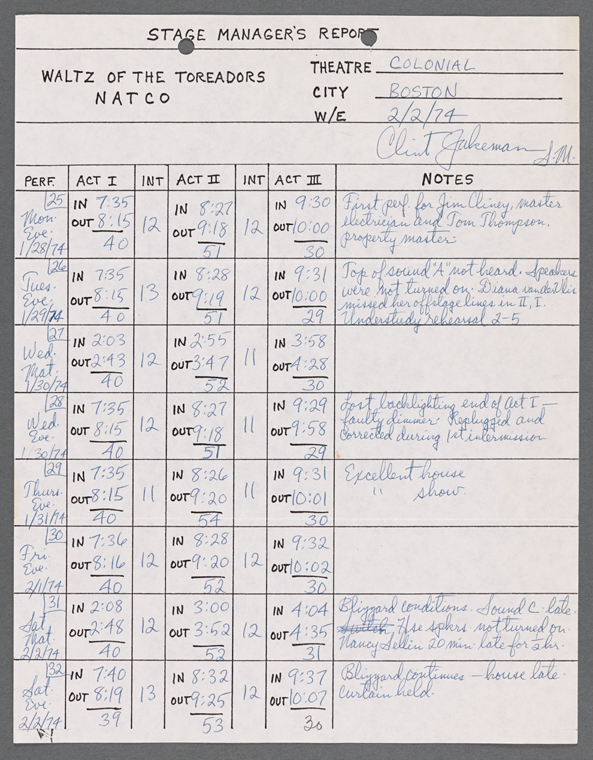 STAGE MANAGER'S REPORT
WALTZ OF THE TOREADORS
NATCO
THEATRE COLONIAL
CITY BOSTON
W/E 2/2/74
Clint Jakeman S.M.
PERF. ACT I INT ACT II INT ACT III NOTES
25
Mon.
Eve.
1/28/74
IN 7:35
OUT 8:15
40
12
IN 8:27
OUT 9:18
51
12
IN 9:30
OUT 10:00
30
First perf. for Jim Cliney, master
electrician and Tom Thompson,
property master.
26
Tues.
Eve.
1/29/74
IN 7:35
OUT 8:15
40
13
IN 8:28
OUT 9:19
51
12
IN 9:31
OUT 10:00
29
Top of sound "A" not heard. Speakers
were not turned on. Diana vanderVlis
missed her offstage lines in II, I.
Understudy rehearsal 2-5
27
Wed.
Mat.
1/30/74
IN 2:03
OUT 2:43
40
12
IN 2:55
OUT 3:47
52
11
IN 3:58
OUT 4:28
30
28
Wed.
Eve.
1/30/74
IN 7:35
OUT 8:15
40
12
IN 8:27
OUT 9:18
51
11
IN 9:29
OUT 9:58
29
Lost backlighting end of Act I —
faulty dimmer. Replugged and
corrected during 1st intermission
29
Thurs.
Eve.
1/31/74
IN 7:35
OUT 8:15
40
11
IN 8:26
OUT 9:20
54
11
IN 9:31
OUT 10:01
30
Excellent house
" show.
30
Fri
Eve.
2/1/74
IN 7:36
OUT 8:16
40
12
IN 8:28
OUT 9:20
52
12
IN 9:32
OUT 10:02
30
31
Sat.
Mat.
2/2/74
IN 2:08
OUT 2:48
40
12
IN 3:00
OUT 3:52
52
12
IN 4:04
OUT 4:35
31
Blizzard conditions. Sound C late.
Hse spkrs not turned on.
Nancy Sellin 20 min. late for ½ hr.
32
Sat.
Eve.
2/2/74
IN 7:40
OUT 8:19
39
13
IN 8:32
OUT 9:25
53
12
IN 9:37
OUT 10:07
30
Blizzard continues — house late.
curtain held.